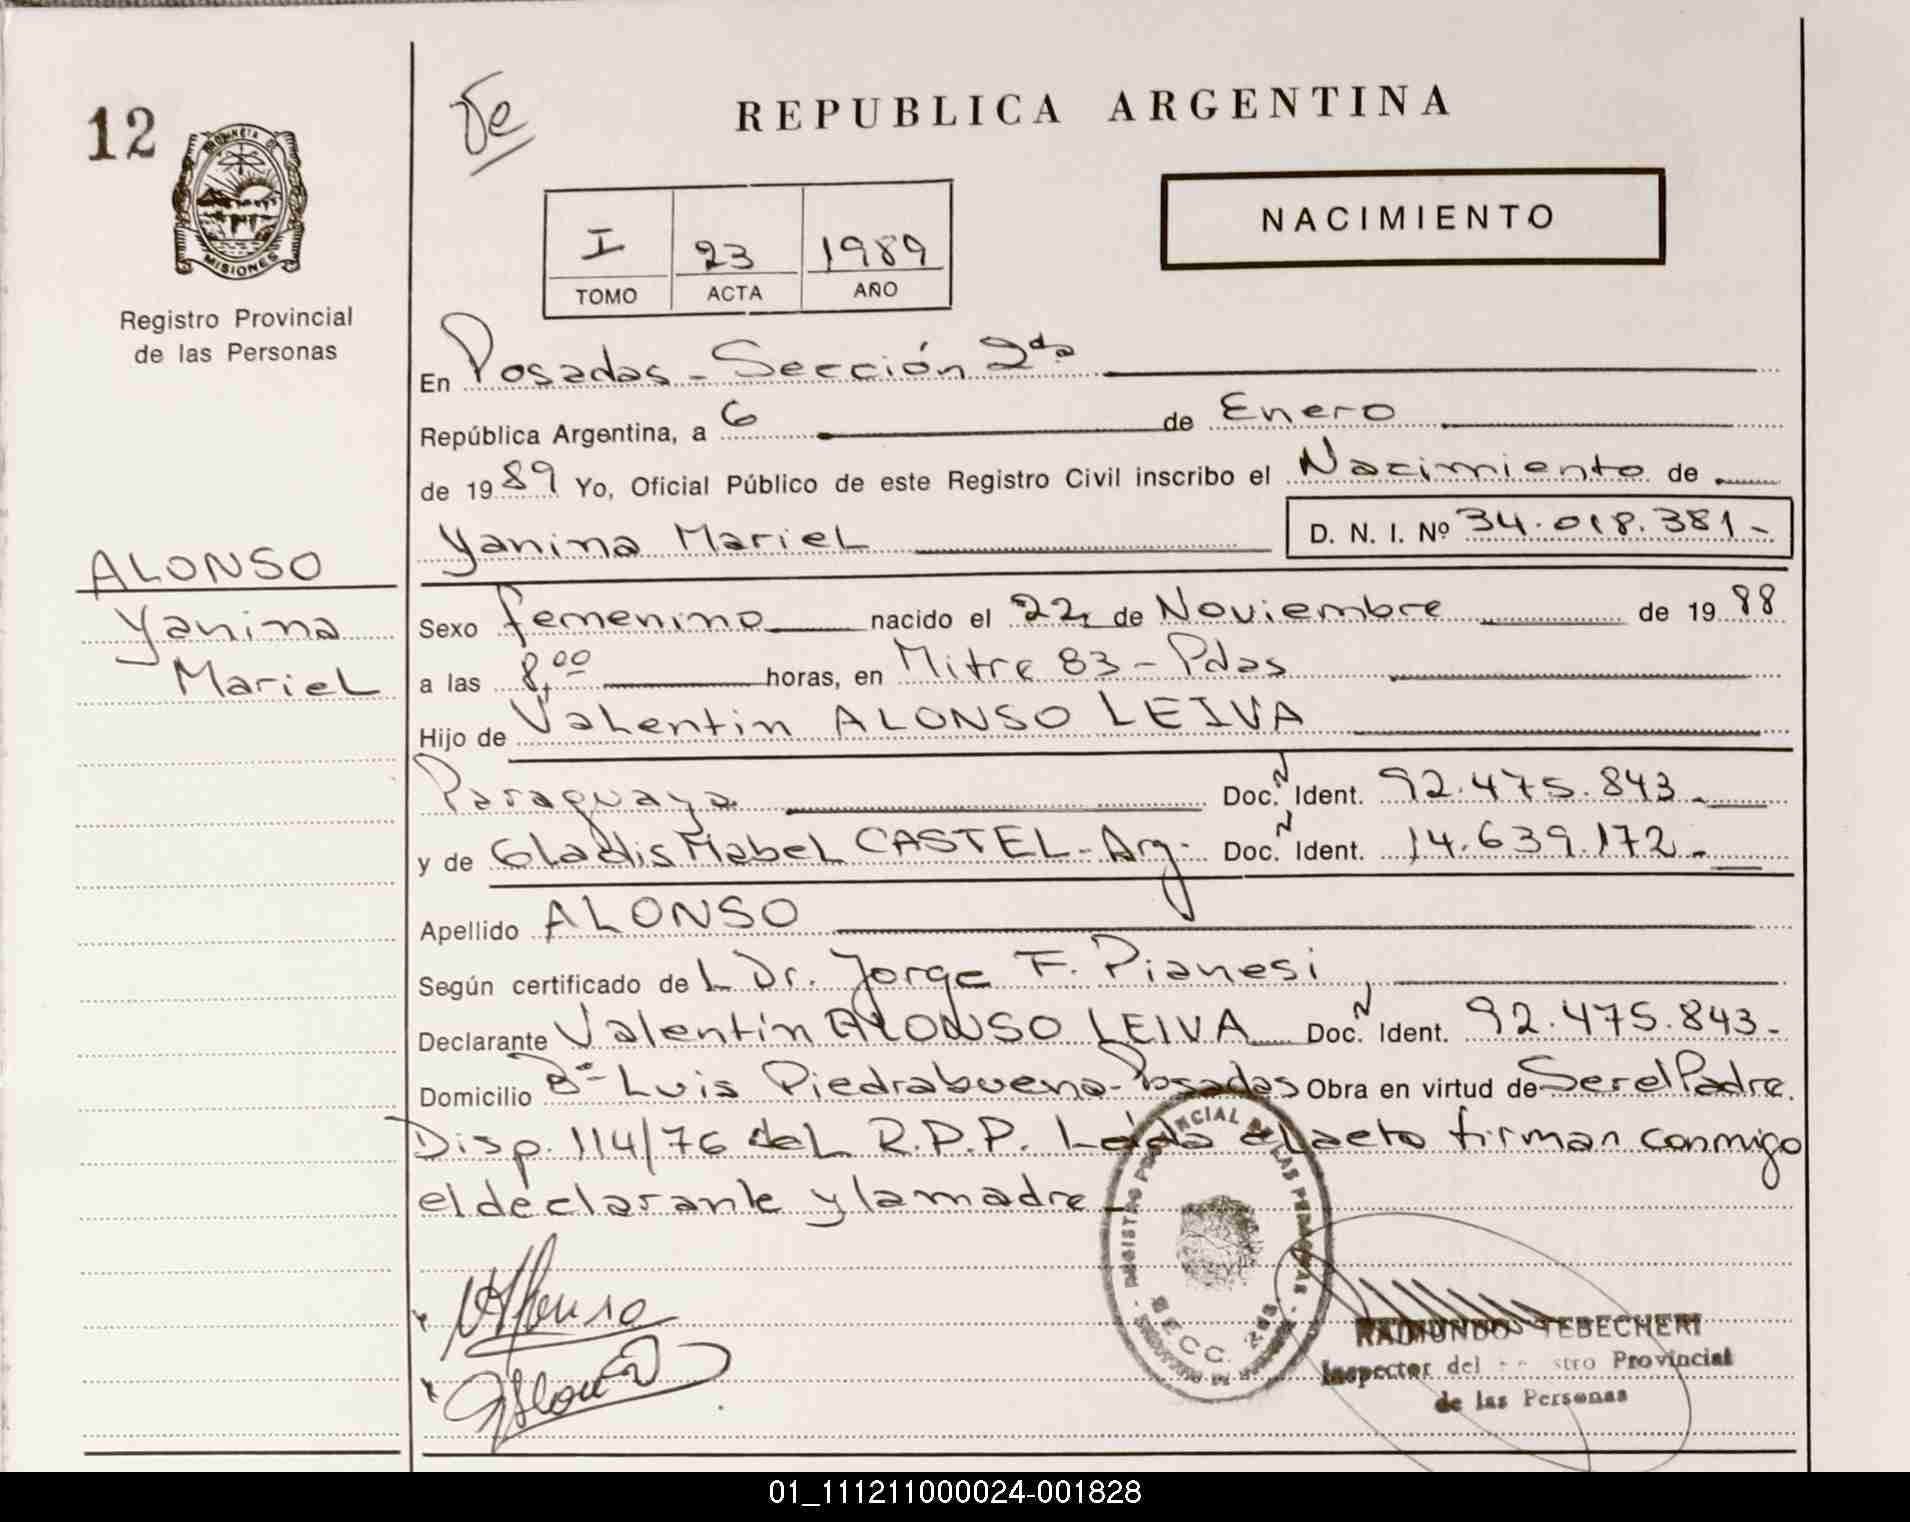 12
PROVINCIA DE
MISIONES
Registro Provincial
de las Personas
ALONSO
Yanina
Mariel
REPUBLICA ARGENTINA
NACIMIENTO
I 23 1989
TOMO ACTA AÑO
En Posadas - Sección 2da
República Argentina, a 6 de Enero
de 1989 Yo, Oficial Público de este Registro Civil inscribo el Nacimiento de
Yanina Mariel D. N. I. Nº 34.018.381-
Sexo femenino nacido el 22 de Noviembre de 1988
a las 8,00 horas, en Mitre 83 - Pdas
Hijo de Valentin ALONSO LEIVA
Paraguaya Doc. N Ident. 92.475.843-
y de Gladis Mabel CASTEL - Arg. Doc. N Ident. 14.639.172-
Apellido ALONSO
Según certificado del Dr. Jorge F. Pianesi
Declarante Valentín ALONSO LEIVA Doc. N Ident. 92.475.843-
Domicilio Bº- Luis Piedrabuena - Posadas Obra en virtud de Ser el Padre.
Disp. 114/76 del R.P.P. Leída el acto firman conmigo
el declarante y la madre
REGISTRO PROVINCIAL DE LAS PERSONAS
SECC.
RAIMUNDO TEBECHERI
Inspector del Provincial
de las Personas
01_111211000024-001828